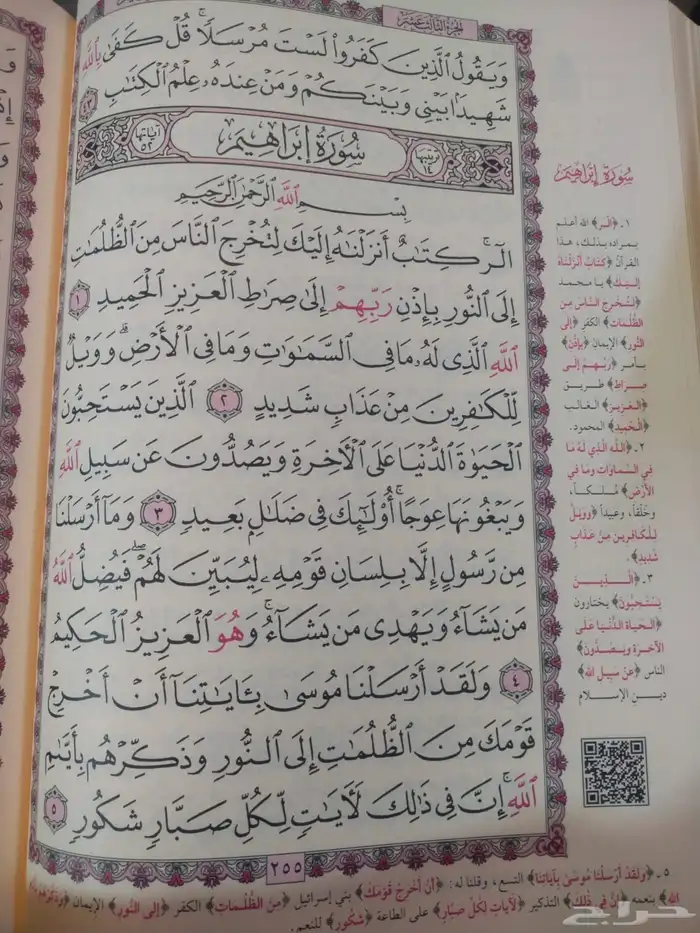 الجزء الثالث عشر
وَيَقُولُ ٱلَّذِينَ كَفَرُواْ لَسْتَ مُرْسَلًاۚ قُلْ كَفَىٰ بِٱللَّهِ
شَهِيدَۢا بَيْنِي وَبَيْنَكُمْ وَمَنْ عِندَهُۥ عِلْمُ ٱلْكِتَٰبِ ٤٣
ترتيبها ١٤ سُورَةُ إِبْرَاهِيمَ آياتها ٥٢
بِسْمِ ٱللَّهِ ٱلرَّحْمَٰنِ ٱلرَّحِيمِ
الٓرۚ كِتَٰبٌ أَنزَلْنَٰهُ إِلَيْكَ لِتُخْرِجَ ٱلنَّاسَ مِنَ ٱلظُّلُمَٰتِ
إِلَى ٱلنُّورِ بِإِذْنِ رَبِّهِمْ إِلَىٰ صِرَٰطِ ٱلْعَزِيزِ ٱلْحَمِيدِ ١
ٱللَّهِ ٱلَّذِي لَهُۥ مَا فِي ٱلسَّمَٰوَٰتِ وَمَا فِي ٱلْأَرْضِۗ وَوَيْلٌ
لِّلْكَٰفِرِينَ مِنْ عَذَابٍ شَدِيدٍ ٢ ٱلَّذِينَ يَسْتَحِبُّونَ
ٱلْحَيَوٰةَ ٱلدُّنْيَا عَلَى ٱلْأٓخِرَةِ وَيَصُدُّونَ عَن سَبِيلِ ٱللَّهِ
وَيَبْغُونَهَا عِوَجًاۚ أُوْلَٰٓئِكَ فِي ضَلَٰلٍۭ بَعِيدٍ ٣ وَمَآ أَرْسَلْنَا
مِن رَّسُولٍ إِلَّا بِلِسَانِ قَوْمِهِۦ لِيُبَيِّنَ لَهُمْۖ فَيُضِلُّ ٱللَّهُ
مَن يَشَآءُ وَيَهْدِي مَن يَشَآءُۚ وَهُوَ ٱلْعَزِيزُ ٱلْحَكِيمُ
٤ وَلَقَدْ أَرْسَلْنَا مُوسَىٰ بِـَٔايَٰتِنَآ أَنْ أَخْرِجْ
قَوْمَكَ مِنَ ٱلظُّلُمَٰتِ إِلَى ٱلنُّورِ وَذَكِّرْهُم بِأَيَّىٰمِ
ٱللَّهِۚ إِنَّ فِي ذَٰلِكَ لَأٓيَٰتٍ لِّكُلِّ صَبَّارٍ شَكُورٍ ٥
٢٥٥
سُورَةُ إِبْرَاهِيمَ
١ـ ﴿الٓر﴾ الله أعلم
بمراده بذلك، هذا
القرآن ﴿كِتَابٌ أَنْزَلْنَاهُ
إِلَيْكَ﴾ يا محمد
﴿لِتُخْرِجَ النَّاسَ مِنَ
الظُّلُمَاتِ﴾ الكفر ﴿إِلَى
النُّورِ﴾ الإيمان ﴿بِإِذْنِ﴾
بأمر ﴿رَبِّهِمْ إِلَى
صِرَاطِ﴾ طريق
﴿الْعَزِيزِ﴾ الغالب
﴿الْحَمِيدِ﴾ المحمود.
٢ـ ﴿اللَّهِ الَّذِي لَهُ مَا
فِي السَّمَاوَاتِ وَمَا فِي
الْأَرْضِ﴾ مُلكاً،
وخَلْقاً، وعبيداً ﴿وَوَيْلٌ
لِلْكَافِرِينَ مِنْ عَذَابٍ
شَدِيدٍ﴾.
٣ـ ﴿الَّذِينَ
يَسْتَحِبُّونَ﴾ يختارون
﴿الْحَيَاةَ الدُّنْيَا عَلَى
الْآخِرَةِ وَيَصُدُّونَ﴾
الناس ﴿عَنْ سَبِيلِ اللَّهِ﴾
دين الإسلام
٥ـ ﴿وَلَقَدْ أَرْسَلْنَا مُوسَىٰ بِآيَاتِنَا﴾ التسع، وقلنا له: ﴿أَنْ أَخْرِجْ قَوْمَكَ﴾ بني إسرائيل ﴿مِنَ الظُّلُمَاتِ﴾ الكفر ﴿إِلَى النُّورِ﴾ الإيمان ﴿وَذَكِّرْهُمْ بِأَيَّامِ
اللَّهِ﴾ بنعمه ﴿إِنَّ فِي ذَٰلِكَ﴾ التذكير ﴿لَآيَاتٍ لِكُلِّ صَبَّارٍ﴾ على الطاعة ﴿شَكُورٍ﴾ للنعم.
حراج